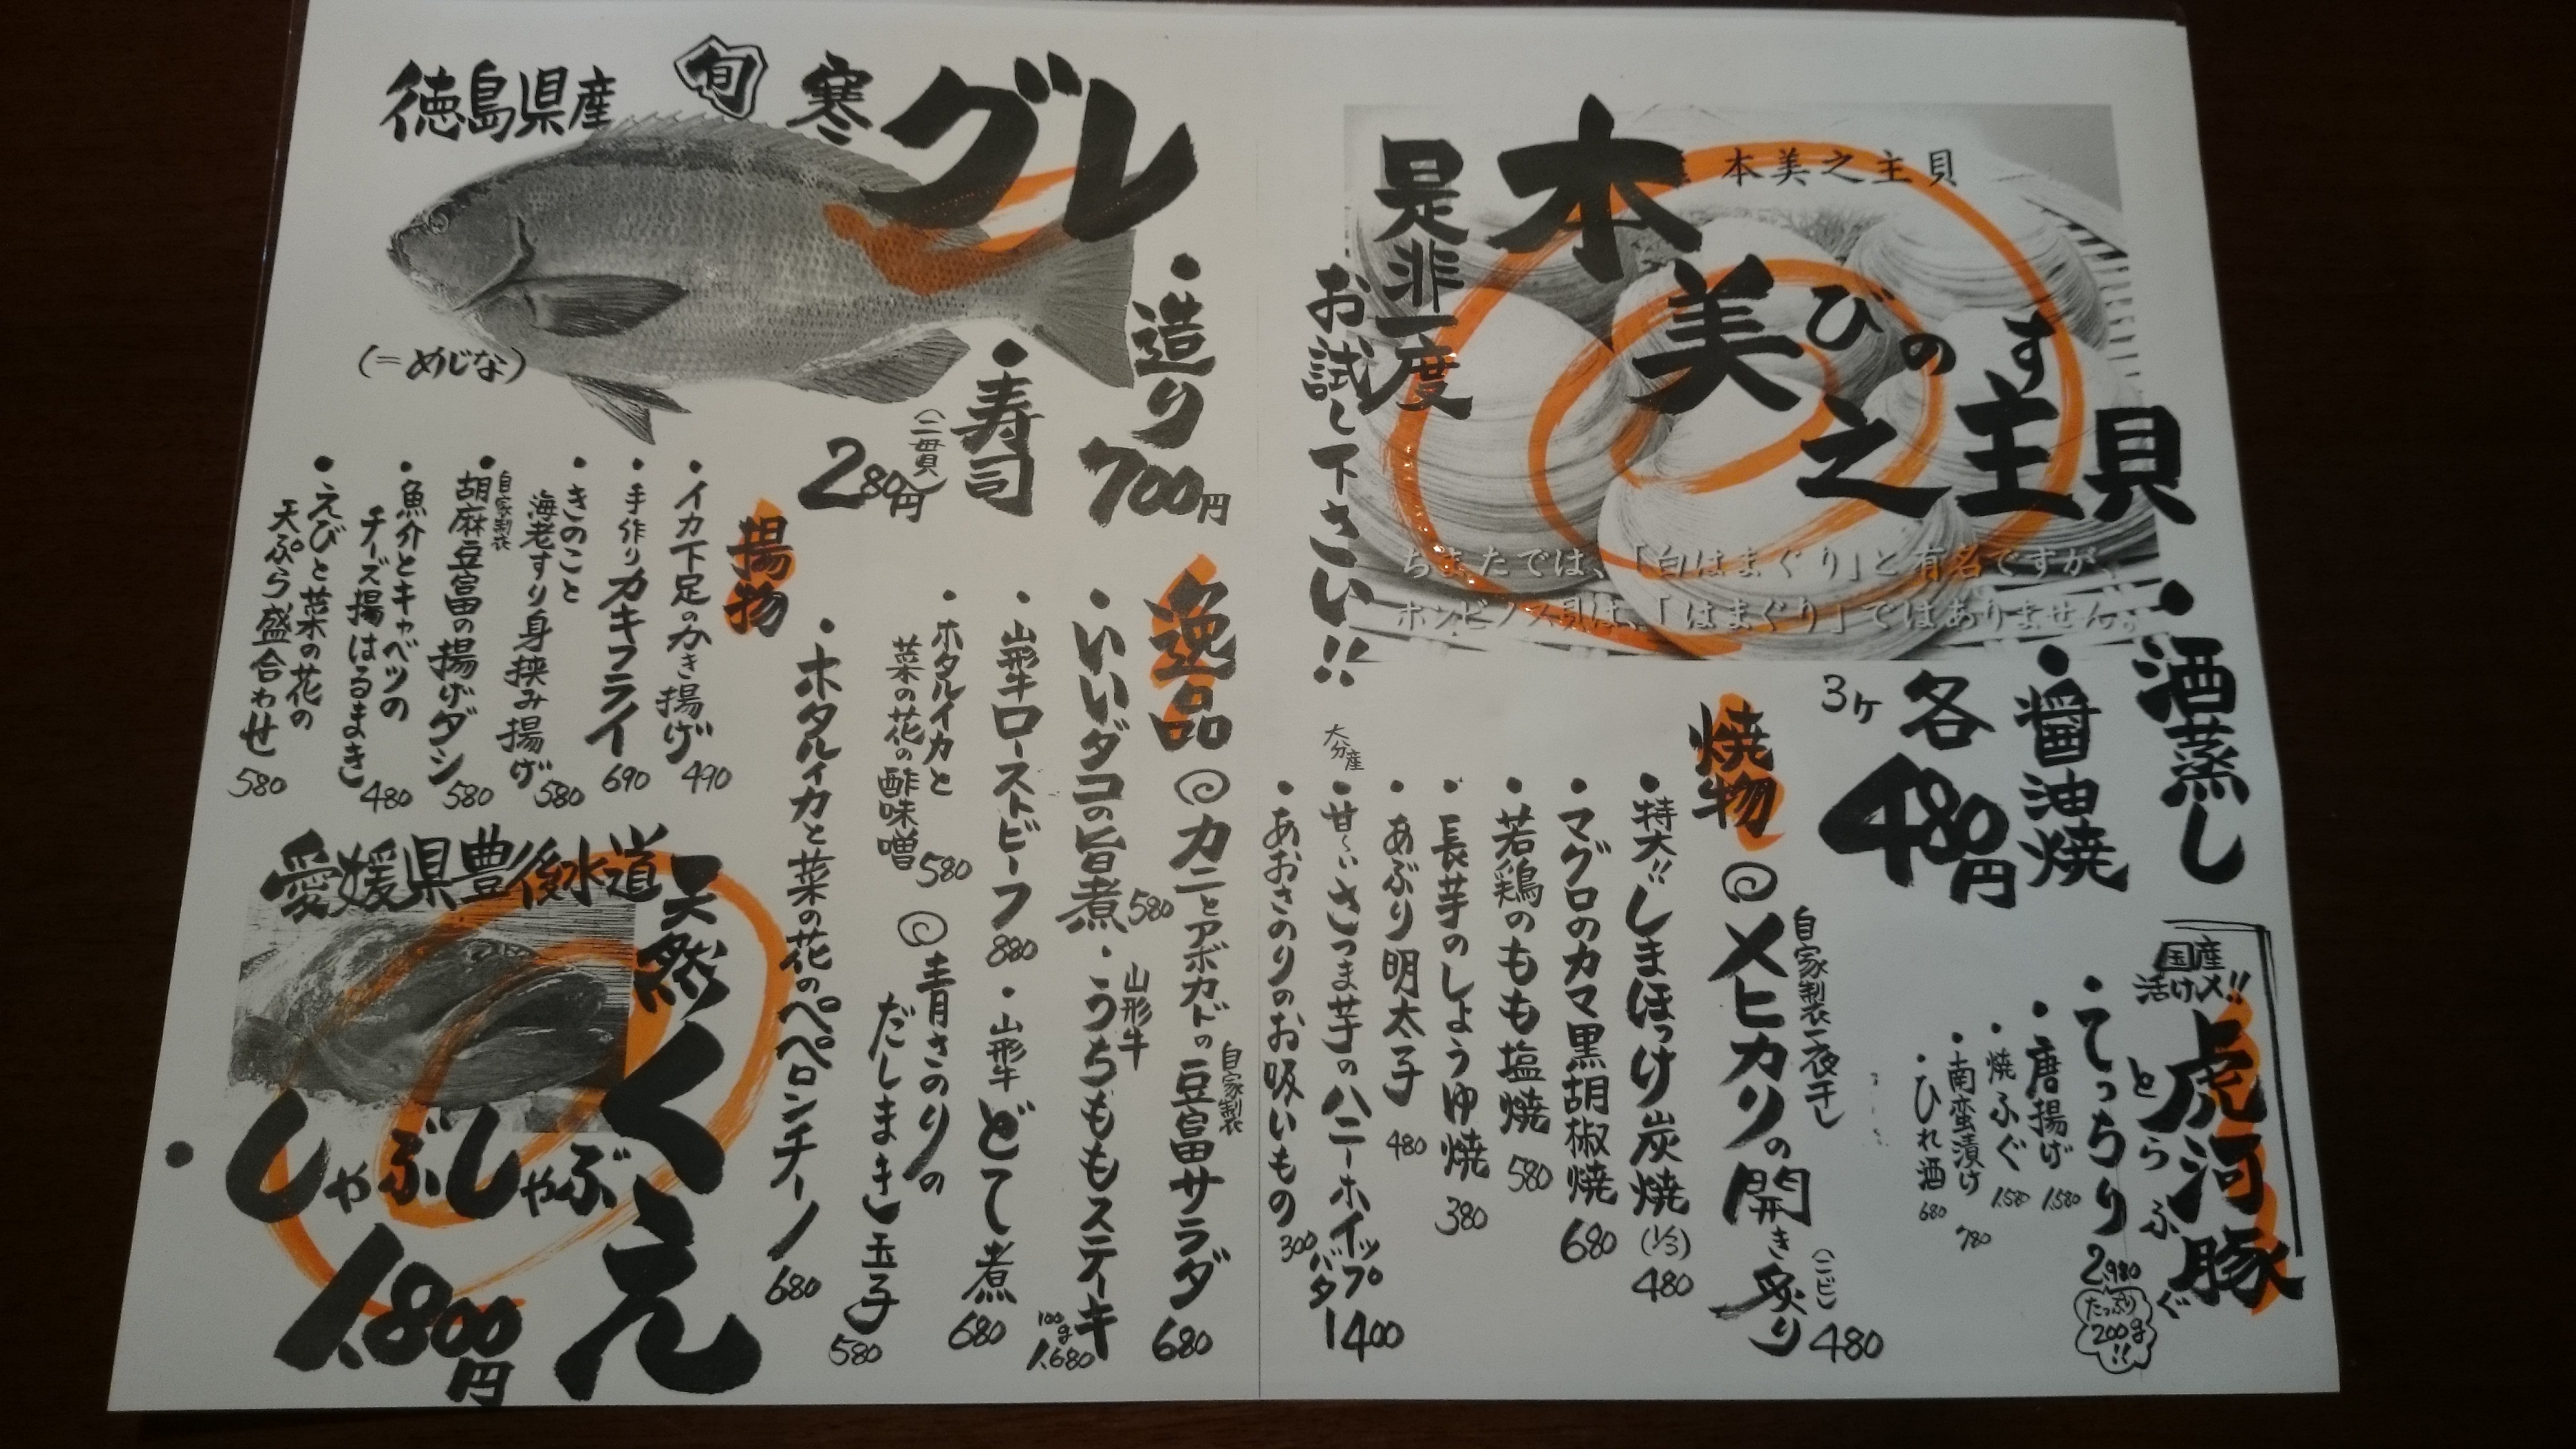 本美之主貝
びのす
本美之主貝
是非一度
お試し下さい!!
ちまたでは、「白はまぐり」と有名ですが、
ホンビノス貝は、「はまぐり」ではありません。
・酒蒸し
・醤油焼
3ヶ 各480円
国産
活け〆!!
虎河豚
とらふぐ
・てっちり 2,980
たっぷり200g!!
・唐揚げ 1,580
・焼ふぐ 1,580
・南蛮漬け 780
・ひれ酒 680
焼物
自家製一夜干し
メヒカリの開き炙り (二ピ) 480
・特大!!しまほっけ炭焼 (1/3) 480
・マグロのカマ黒胡椒焼 680
・若鶏のもも塩焼 580
・長芋のしょうゆ焼 380
・あぶり明太子 480
大分産
・甘〜いさつま芋のハニーホイップバター 400
・あおさのりのお吸いもの 300
徳島県産 旬 寒グレ
(=めじな)
・造り 700円
・寿司 (二貫) 280円
逸品
カニとアボカドの自家製豆富サラダ 680
・いいダコの旨煮 580
・山形牛うちももステーキ 100g 1,680
・山形牛ローストビーフ 880
・山形牛どて煮 680
・ホタルイカと
菜の花の酢味噌 580
青さのりの
だしまき玉子 580
・ホタルイカと菜の花のペペロンチーノ 680
揚物
・イカ下足のかき揚げ 490
・手作りカキフライ 690
・きのこと
海老すり身挟み揚げ 580
・自家製胡麻豆富の揚げダシ 580
・魚介とキャベツの
チーズ揚はるまき 480
・えびと菜の花の
天ぷら盛合わせ 580
愛媛県豊後水道
天然くえ
・しゃぶしゃぶ
1,800円